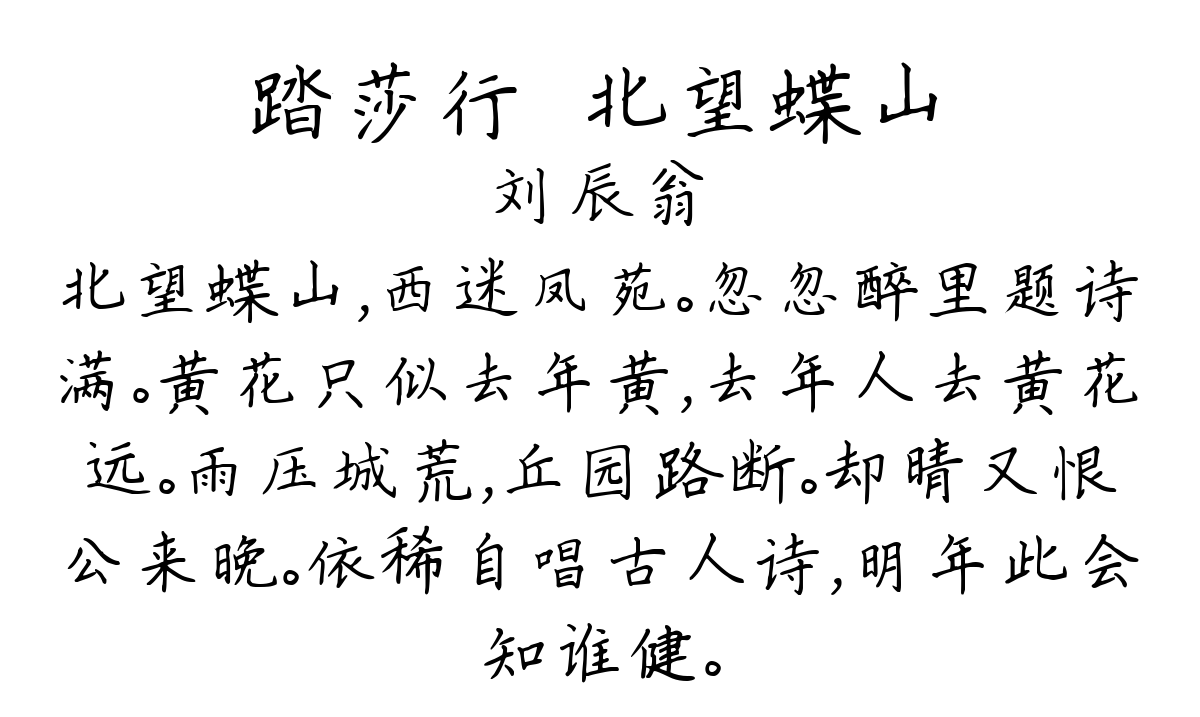 踏莎行 北望蝶山
刘辰翁
北望蝶山,西迷凤苑。忽忽醉里题诗
满。黄花只似去年黄,去年人去黄花
远。雨压城荒,丘园路断。却晴又恨
公来晚。依稀自唱古人诗,明年此会
知谁健。